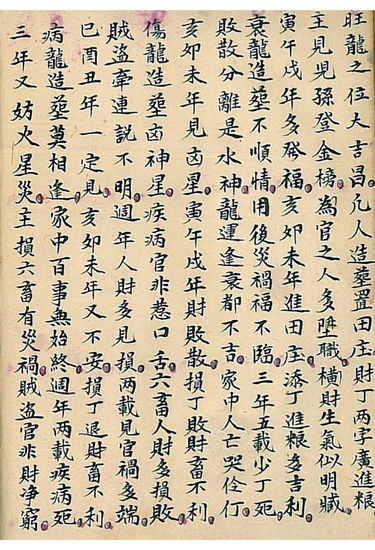 旺龍之位大吉昌凡人造墓置田庄財丁两字廣進粮
主見児孫登金榜為官之人多陞職橫財生氣似明賊
寅午戍年多發福亥卯未年進田庄添丁進粮多吉利
衰龍造墓不順情用後災禍福不臨三年五載少丁死
敗散分離是水神龍運逢衰都不吉家中人亡哭伶仃
亥卯未年見凶星寅午戍年財敗散損丁敗財畜不利
傷龍造墓凶神星疾病官非惹口舌六畜人財多損敗
賊盜牽連説不明週年人財多見損两載見官禍多端
巳酉丑年一定見亥卯未年又不安損丁退財畜不利
病龍造墓莫相逢家中百事無始終週年两載疾病死
三年又妨火星災主損六畜有災禍賊盜官非財净窮